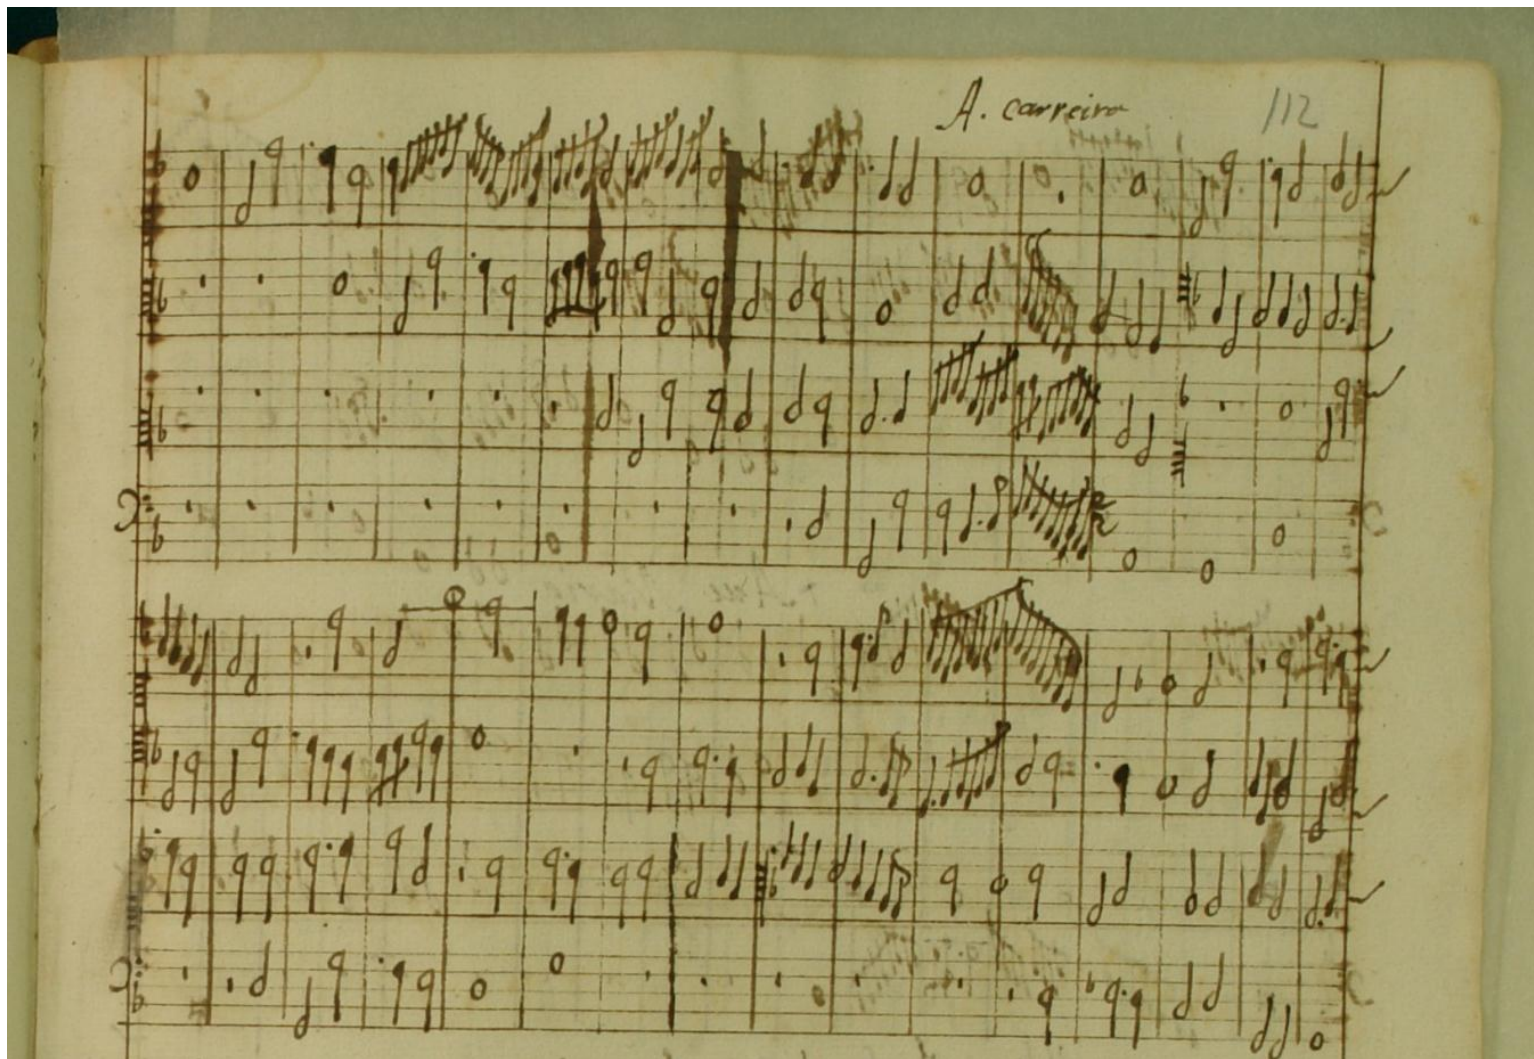 A. carreira 112